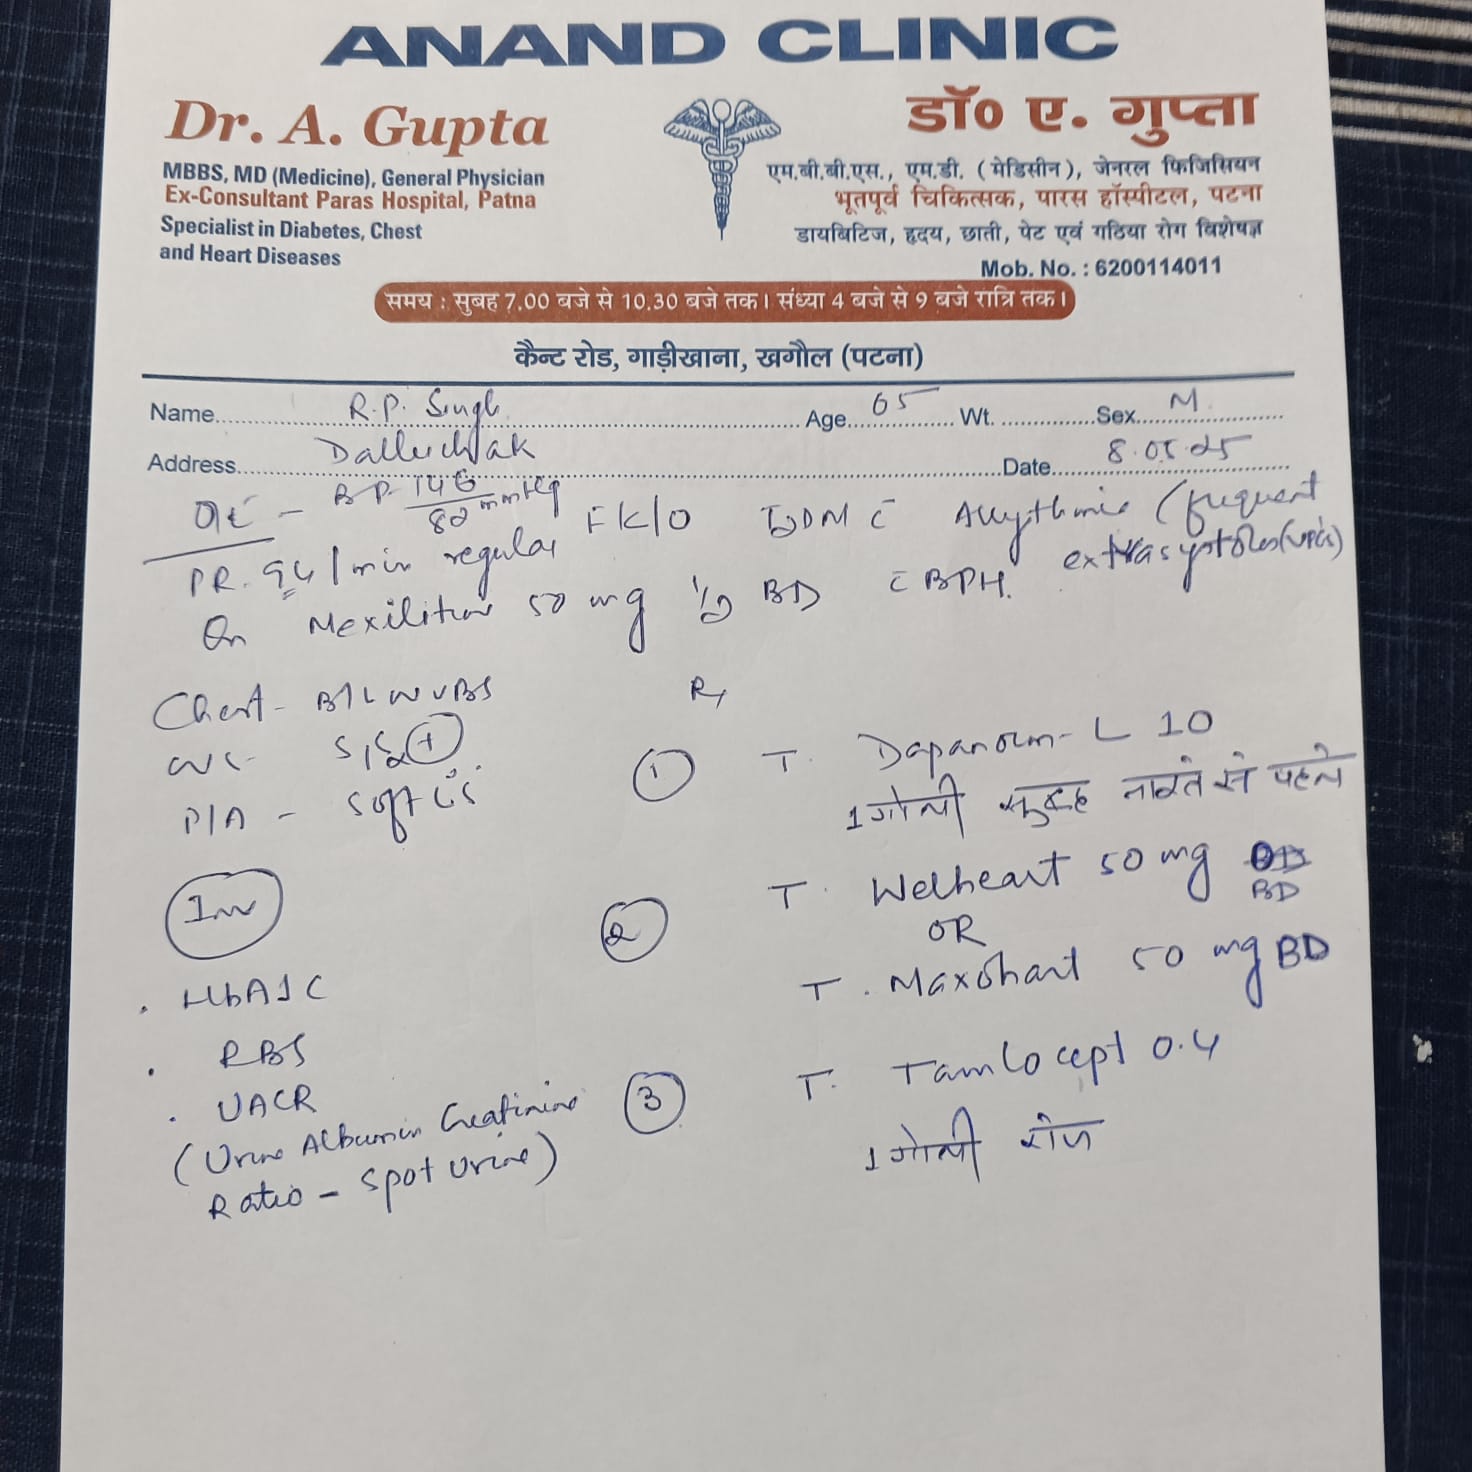 ANAND CLINIC
Dr. A. Gupta
MBBS, MD (Medicine), General Physician
Ex-Consultant Paras Hospital, Patna
Specialist in Diabetes, Chest
and Heart Diseases
डॉ० ए. गुप्ता
एम.बी.बी.एस., एम.डी. (मेडिसीन), जेनरल फिजिसियन
भूतपूर्व चिकित्सक, पारस हॉस्पीटल, पटना
डायबिटिज, हृदय, छाती, पेट एवं गठिया रोग विशेषज्ञ
Mob. No. : 6200114011
समय : सुबह 7.00 बजे से 10.30 बजे तक। संध्या 4 बजे से 9 बजे रात्रि तक।
कैन्ट रोड, गाड़ीखाना, खगौल (पटना)
Name R.P. Singh Age 65 Wt. Sex M
Address Dalluchak Date 8.05.25
O/E - BP - 146/82 mmHg
PR. 94/min regular
F K/O T2DM c Arrythmia (frequent
extrasystoles (VPC's)
c BPH.
On Mexilitine 50 mg 1/2 BD
Chest - B/L NVBS
CVS - S1S2 +
P/A - Soft
Inv
. HbA1C
. RBS
. UACR
(Urine Albumin Creatinine
Ratio - Spot Urine)
Rx
① T. Dapanorm-L 10
1 गोली सुबह नास्ते से पहले
② T. Welheart 50 mg BD
OR
T. Maxohart 50 mg BD
③ T. Tamlocept 0.4
1 गोली रोज